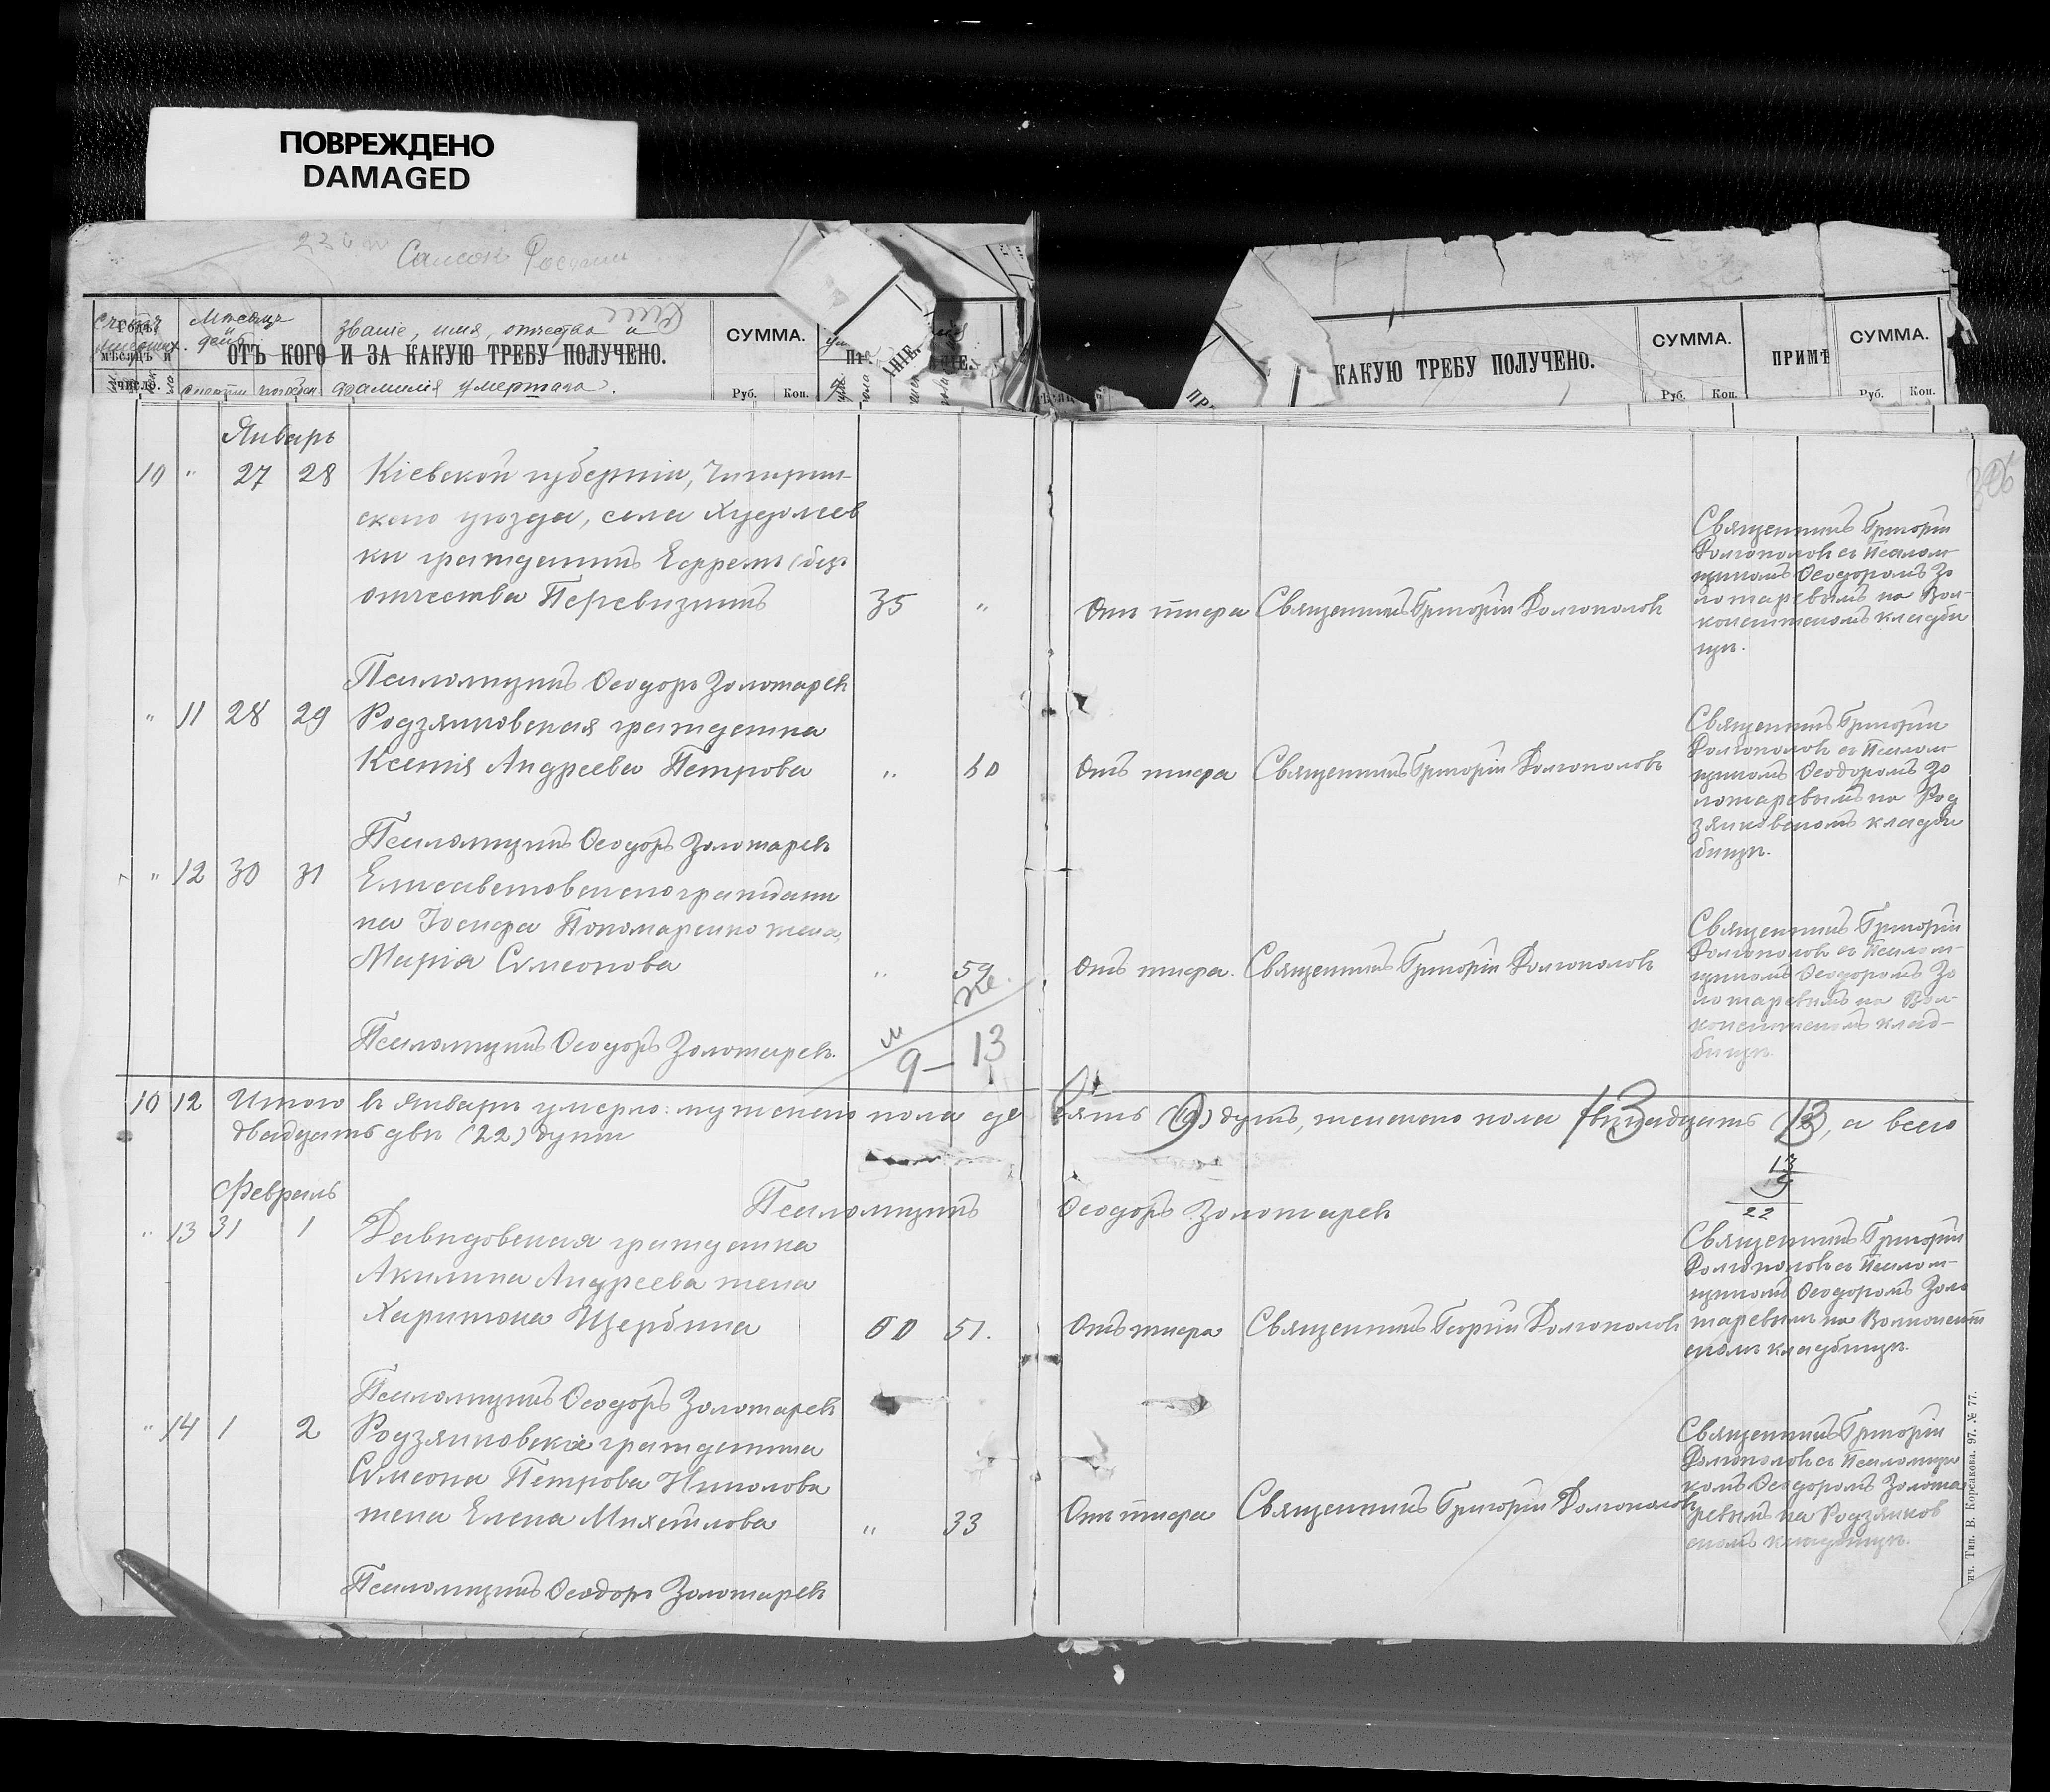 ПОВРЕЖДЕНО
DAMAGED
Мѣсяцъ и день
званіе, имя, отчество и
ОТЪ КОГО И ЗА КАКУЮ ТРЕБУ ПОЛУЧЕНО.
СУММА.
Руб. Коп.
фамилія умершаго.
КАКУЮ ТРЕБУ ПОЛУЧЕНО.
СУММА.
Руб. Коп.
ПРИМѢ
СУММА.
Руб. Коп.
Январь
10 " 27 28 Кіевской губерніи, Чигирин-
скаго уѣзда, села Худолеев
ки гражданинъ Ефремъ (без
отчества Перевизникъ 35 " Отъ тифа Священникъ Григорій Долгополовъ
Священникъ Григорій
Долгополовъ съ Псалом-
щикомъ Ѳеодоромъ Зо
лотаревымъ на Вол-
конситскомъ кладби
щѣ.
Псаломщикъ Ѳеодоръ Золотаревъ
" 11 28 29 Родзянковская гражданка
Ксенія Андреева Петрова " 60 Отъ тифа Священникъ Григорій Долгополовъ
Священникъ Григорій
Долгополовъ съ Псалом-
щикомъ Ѳеодоромъ Зо
лотаревымъ на Род
зянковскомъ кладби
бищѣ.
Псаломщикъ Ѳеодоръ Золотаревъ
" 12 30 31 Елисаветовскаго граждани
на Іосифа Пономаренко жена,
Марія Сумеонова " 59 Отъ тифа. Священникъ Григорій Долгополовъ
Священникъ Григорій
Долгополовъ съ Псалом-
щикомъ Ѳеодоромъ Зо
лотаревымъ на Вол-
конситскомъ клад-
бищѣ.
Псаломщикъ Ѳеодоръ Золотаревъ.
м же.
9 – 13
10 12 Итого въ январѣ умерло: мужескаго пола де вять (9) душъ, женскаго пола тринадцать (13), а всего
двадцать двѣ (22) души
13
9
22
Псаломщикъ Ѳеодоръ Золотаревъ
Февраль
" 13 31 1 Давидовская гражданка
Акилина Андреева жена
Харитона Щербина 60 51. Отъ тифа Священникъ Георгій Долгополовъ
Священникъ Григорій
Долгополовъ съ Псалом-
щикомъ Ѳеодоромъ Золо
таревымъ на Волконсит
скомъ кладбищѣ.
Псаломщикъ Ѳеодоръ Золотаревъ
" 14 1 2 Родзянковскія гражданина
Сумеона Петрова Николова
жена Елена Михаилова " 33 Отъ тифа Священникъ Григорій Долгополовъ
Священникъ Григорій
Долгополовъ съ Псаломщи
комъ Ѳеодоромъ Золота
ревымъ на Родзянков
скомъ кладбищѣ.
Псаломщикъ Ѳеодоръ Золотаревъ
Тип. В. Корсакова. 97. № 77.